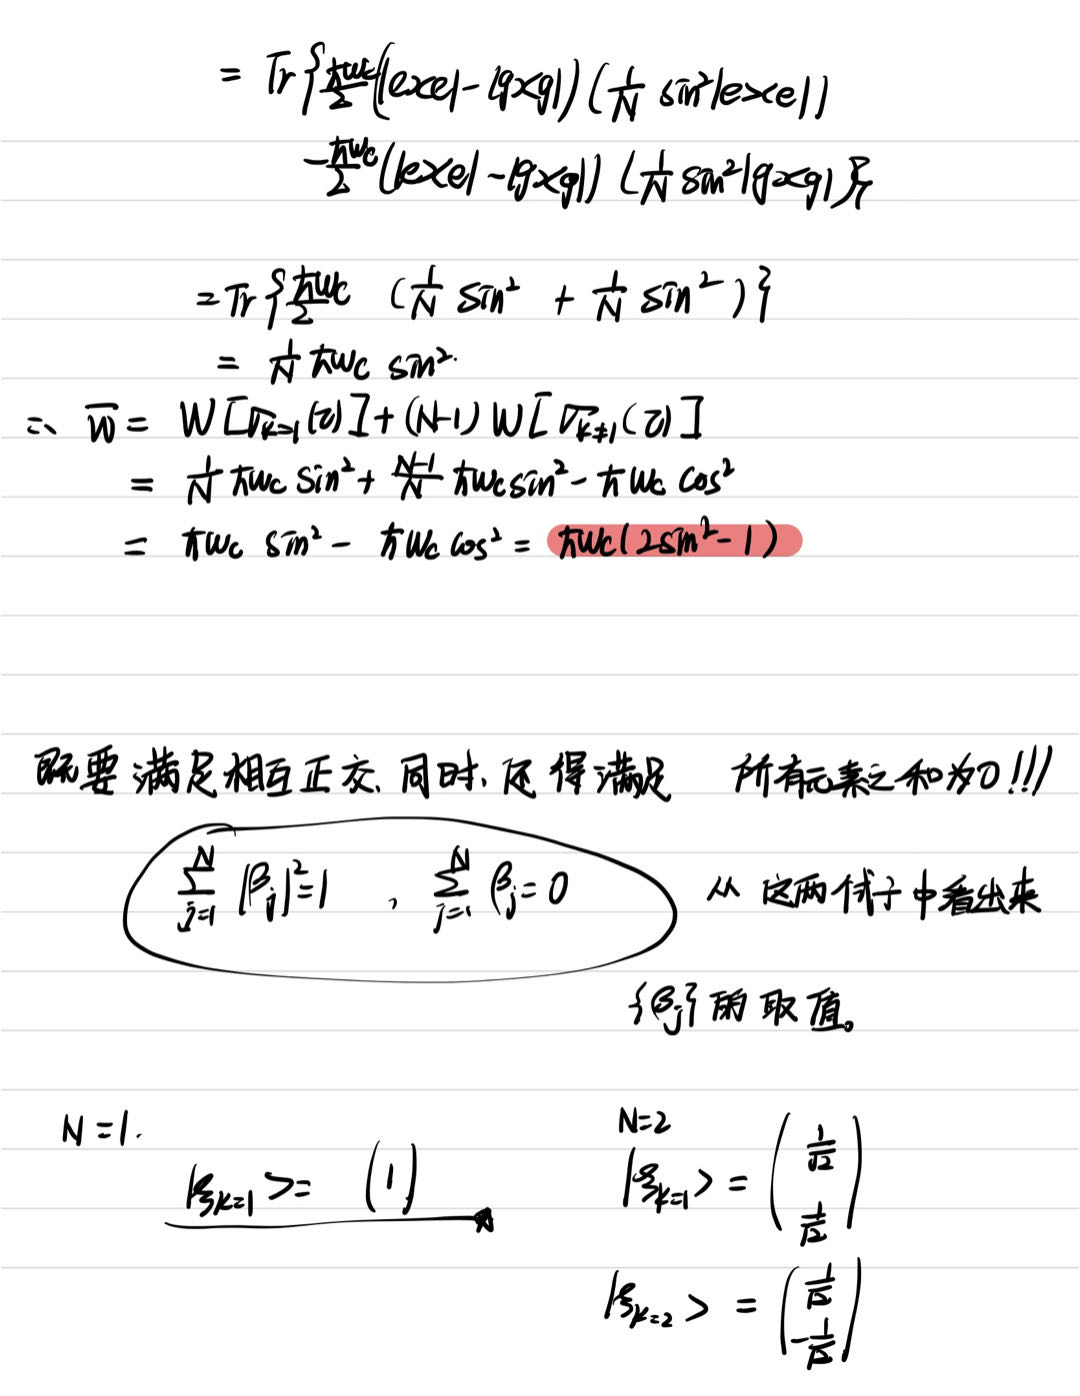 = Tr{ħωc/2 (|e><e| - |g><g|) (1/N sin²|e><e|)
- ħωc/2 (|e><e| - |g><g|) (1/N sin²|g><g|)}
= Tr{ħωc/2 (1/N sin² + 1/N sin²)}
= 1/N ħωc sin².
∴ W̄ = W[σ_{k=1}(τ)] + (N-1) W[σ_{k≠1}(τ)]
= 1/N ħωc sin² + (N-1)/N ħωc sin² - ħωc cos²
= ħωc sin² - ħωc cos² = ħωc(2sin² - 1)
既要满足相互正交、同时、还得满足 所有元素之和为0!!!
∑_{j=1}^{N} |β_j|² = 1 , ∑_{j=1}^{N} β_j = 0 从这两个式子中看出来
{β_j}的取值。
N=1. N=2
|ξ_{k=1}> = (1) |ξ_{k=1}> = (1/√2 1/√2)
|ξ_{k=2}> = (1/√2 -1/√2)